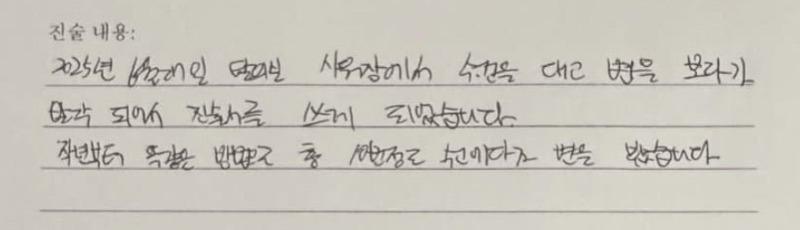 진술 내용:
2025년 사우장에서 수건을 대고 변을 보다가
발각 되어서 진술서를 쓰게 되었습니다.
작년부터 똑같은 방법으로 총 수건에다가 변을 보았습니다